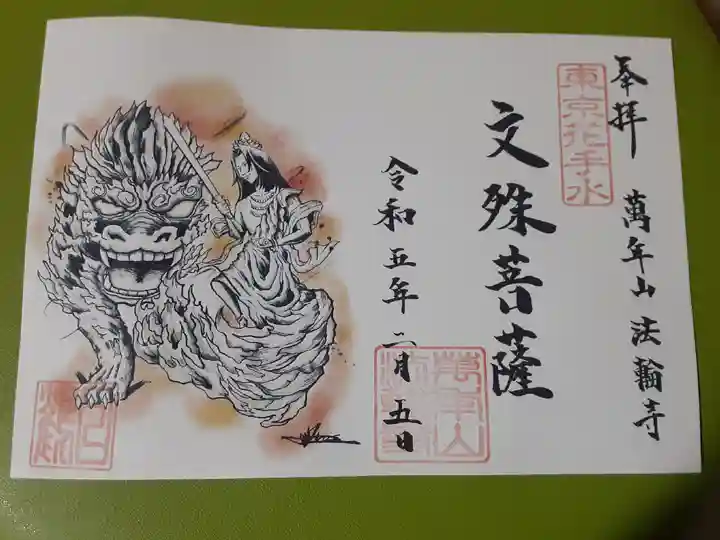 奉拝 萬年山 法輪寺
東京花手水
文殊菩薩
令和五年二月五日